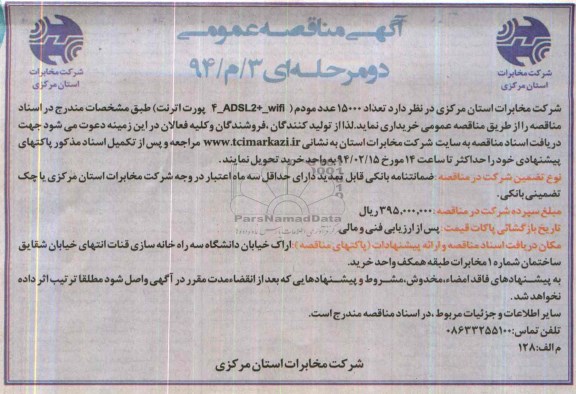 آگهی مناقصه عمومی
دومرحله‌ای ۹۴/م/۳
شرکت مخابرات
استان مرکزی
شرکت مخابرات
استان مرکزی
شرکت مخابرات استان مرکزی در نظر دارد تعداد ۱۵۰۰۰ عدد مودم ( ۴_ADSL2+_wifi پورت اترنت) طبق مشخصات مندرج در اسناد
مناقصه را از طریق مناقصه عمومی خریداری نماید.لذا از تولید کنندگان ،فروشندگان و کلیه فعالان در این زمینه دعوت می شود جهت
دریافت اسناد مناقصه به سایت شرکت مخابرات استان به نشانی www.tcimarkazi.ir مراجعه و پس از تکمیل اسناد مذکور پاکتهای
پیشنهادی خود را حداکثر تا ساعت ۱۴ مورخ ۹۴/۰۲/۱۵ به واحد خرید تحویل نمایند.
نوع تضمین شرکت در مناقصه :ضمانتنامه بانکی قابل تمدید دارای حداقل سه ماه اعتبار در وجه شرکت مخابرات استان مرکزی یا چک
تضمینی بانکی.
مبلغ سپرده شرکت در مناقصه : ۳۹۵,۰۰۰,۰۰۰ ریال
تاریخ بازگشائی پاکات قیمت: پس از ارزیابی فنی و مالی
ParsNamadData
مکان دریافت اسناد مناقصه و ارائه پیشنهادات (پاکتهای مناقصه ):اراک خیابان دانشگاه سه راه خانه سازی قنات انتهای خیابان شقایق
ساختمان شماره ۱ مخابرات طبقه همکف واحد خرید.
به پیشنهادهای فاقد امضاء،مخدوش،مشروط و پیشنهادهایی که بعد از انقضاءمدت مقرر در آگهی واصل شود مطلقا ترتیب اثر داده
نخواهد شد.
سایر اطلاعات و جزئیات مربوط ،در اسناد مناقصه مندرج است.
تلفن تماس:۰۸۶۳۳۲۵۵۱۰۰
م الف:۱۲۸
شرکت مخابرات استان مرکزی